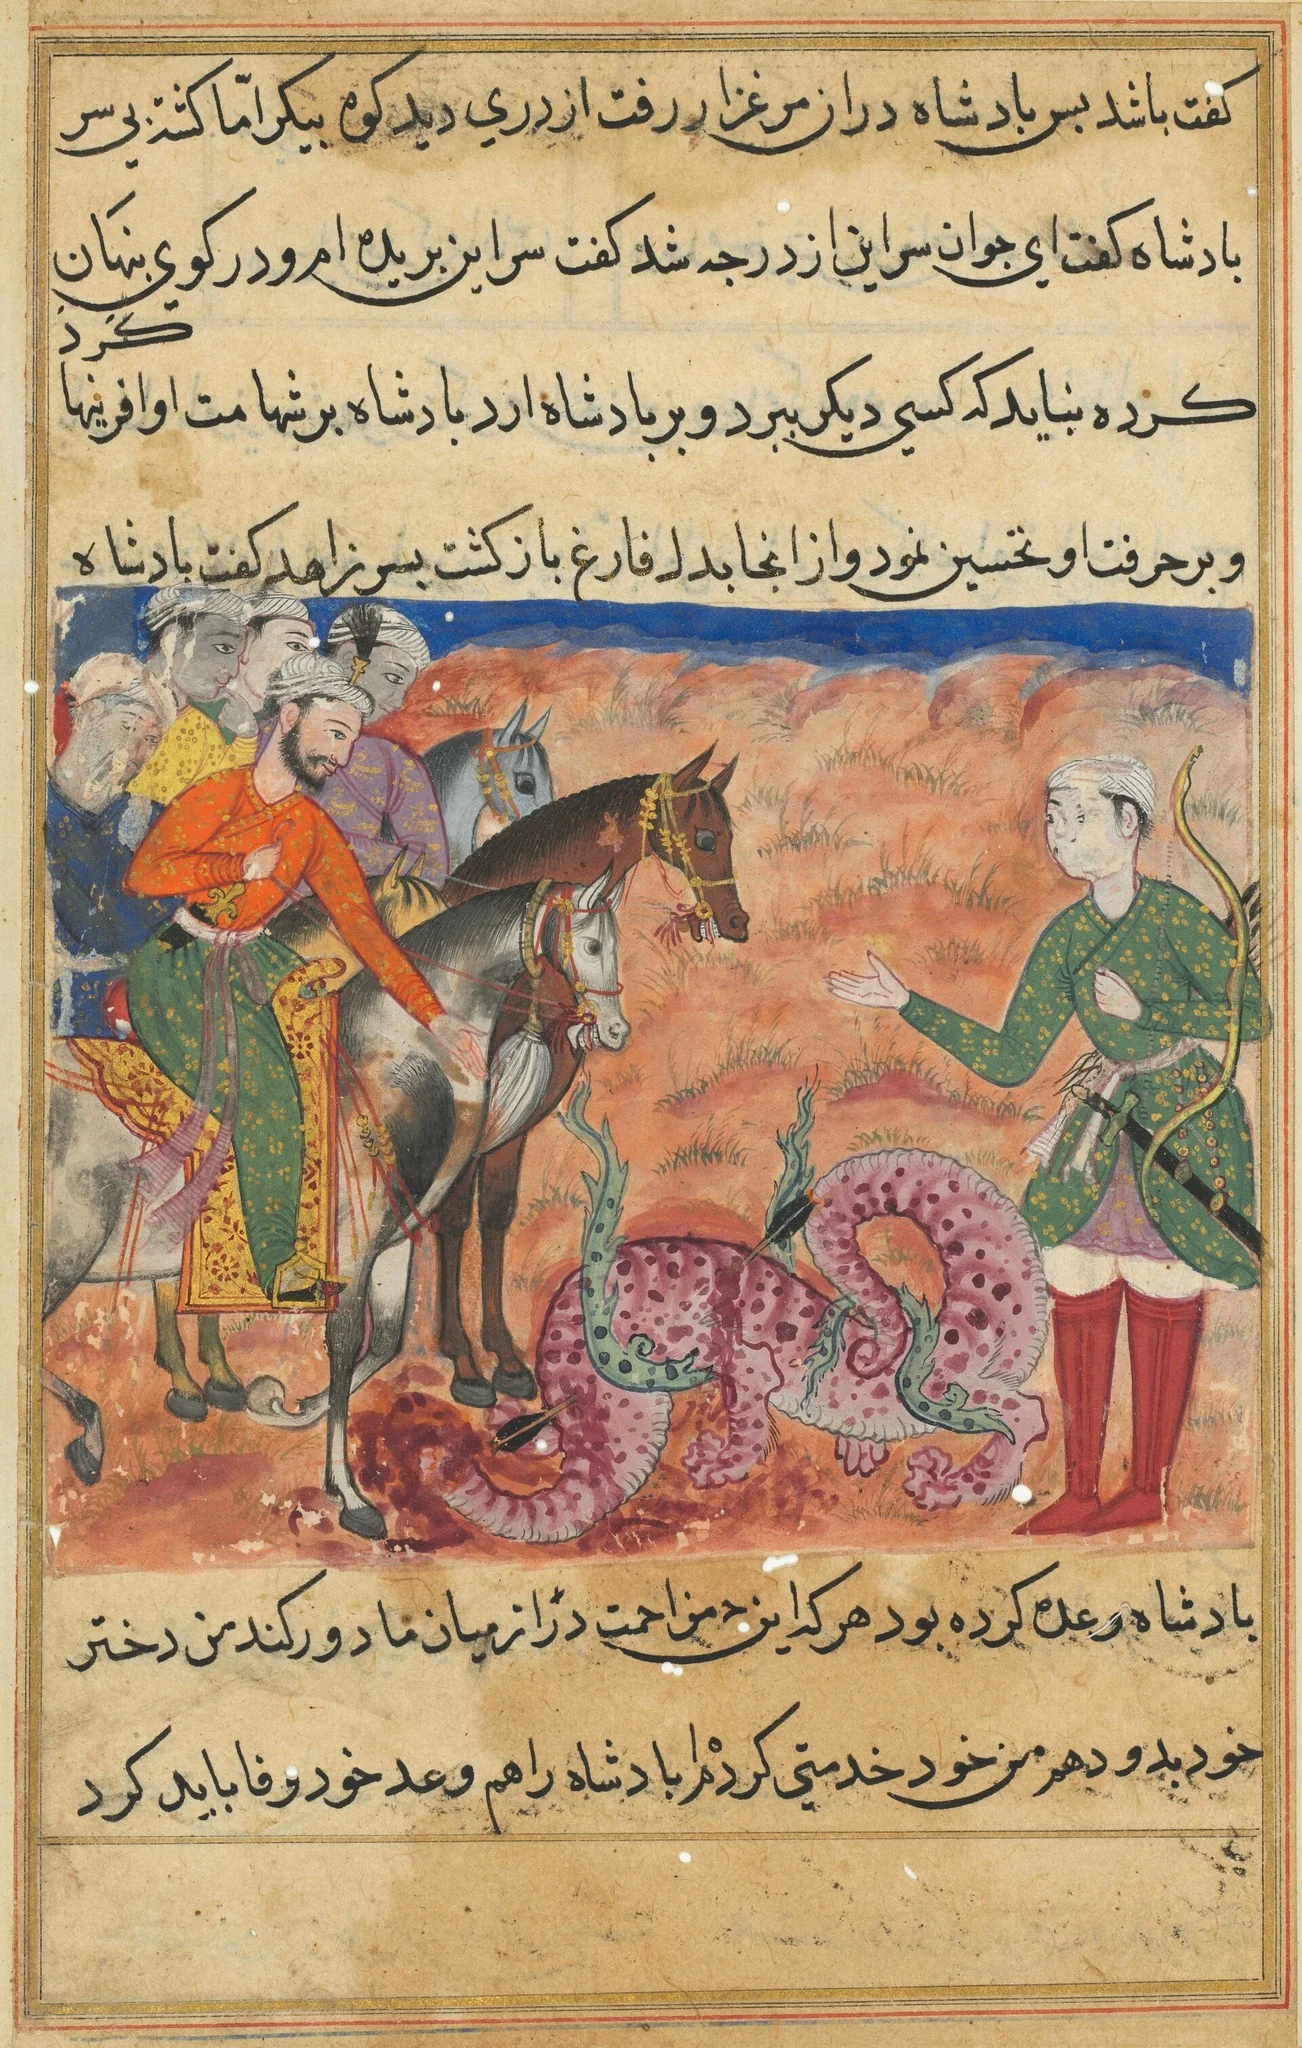 کفت باشد بس بادشاه دران مرغزار رفت ازدري دید کوه بیکر امّا کشته بی سر
بادشاه کفت ای جوان سر این ازدر چه شد کفت سر این بریده ام و در کوی بنهان
کرد
کرده نباید که کسی دیکر ببرد و بر بادشاه ارد بادشاه بر شهامت او افرینها
و بر حرفت او تحسین نمود و از انجا بدل فارغ باز کشت بسر زاهد کفت بادشاه
بادشاه وعده کرده بود هر که این مزاحمت از میان ما دور کند من دختر
خود بدو دهم من خود خدمتی کردم بادشاه را هم وعد خود وفا باید کرد